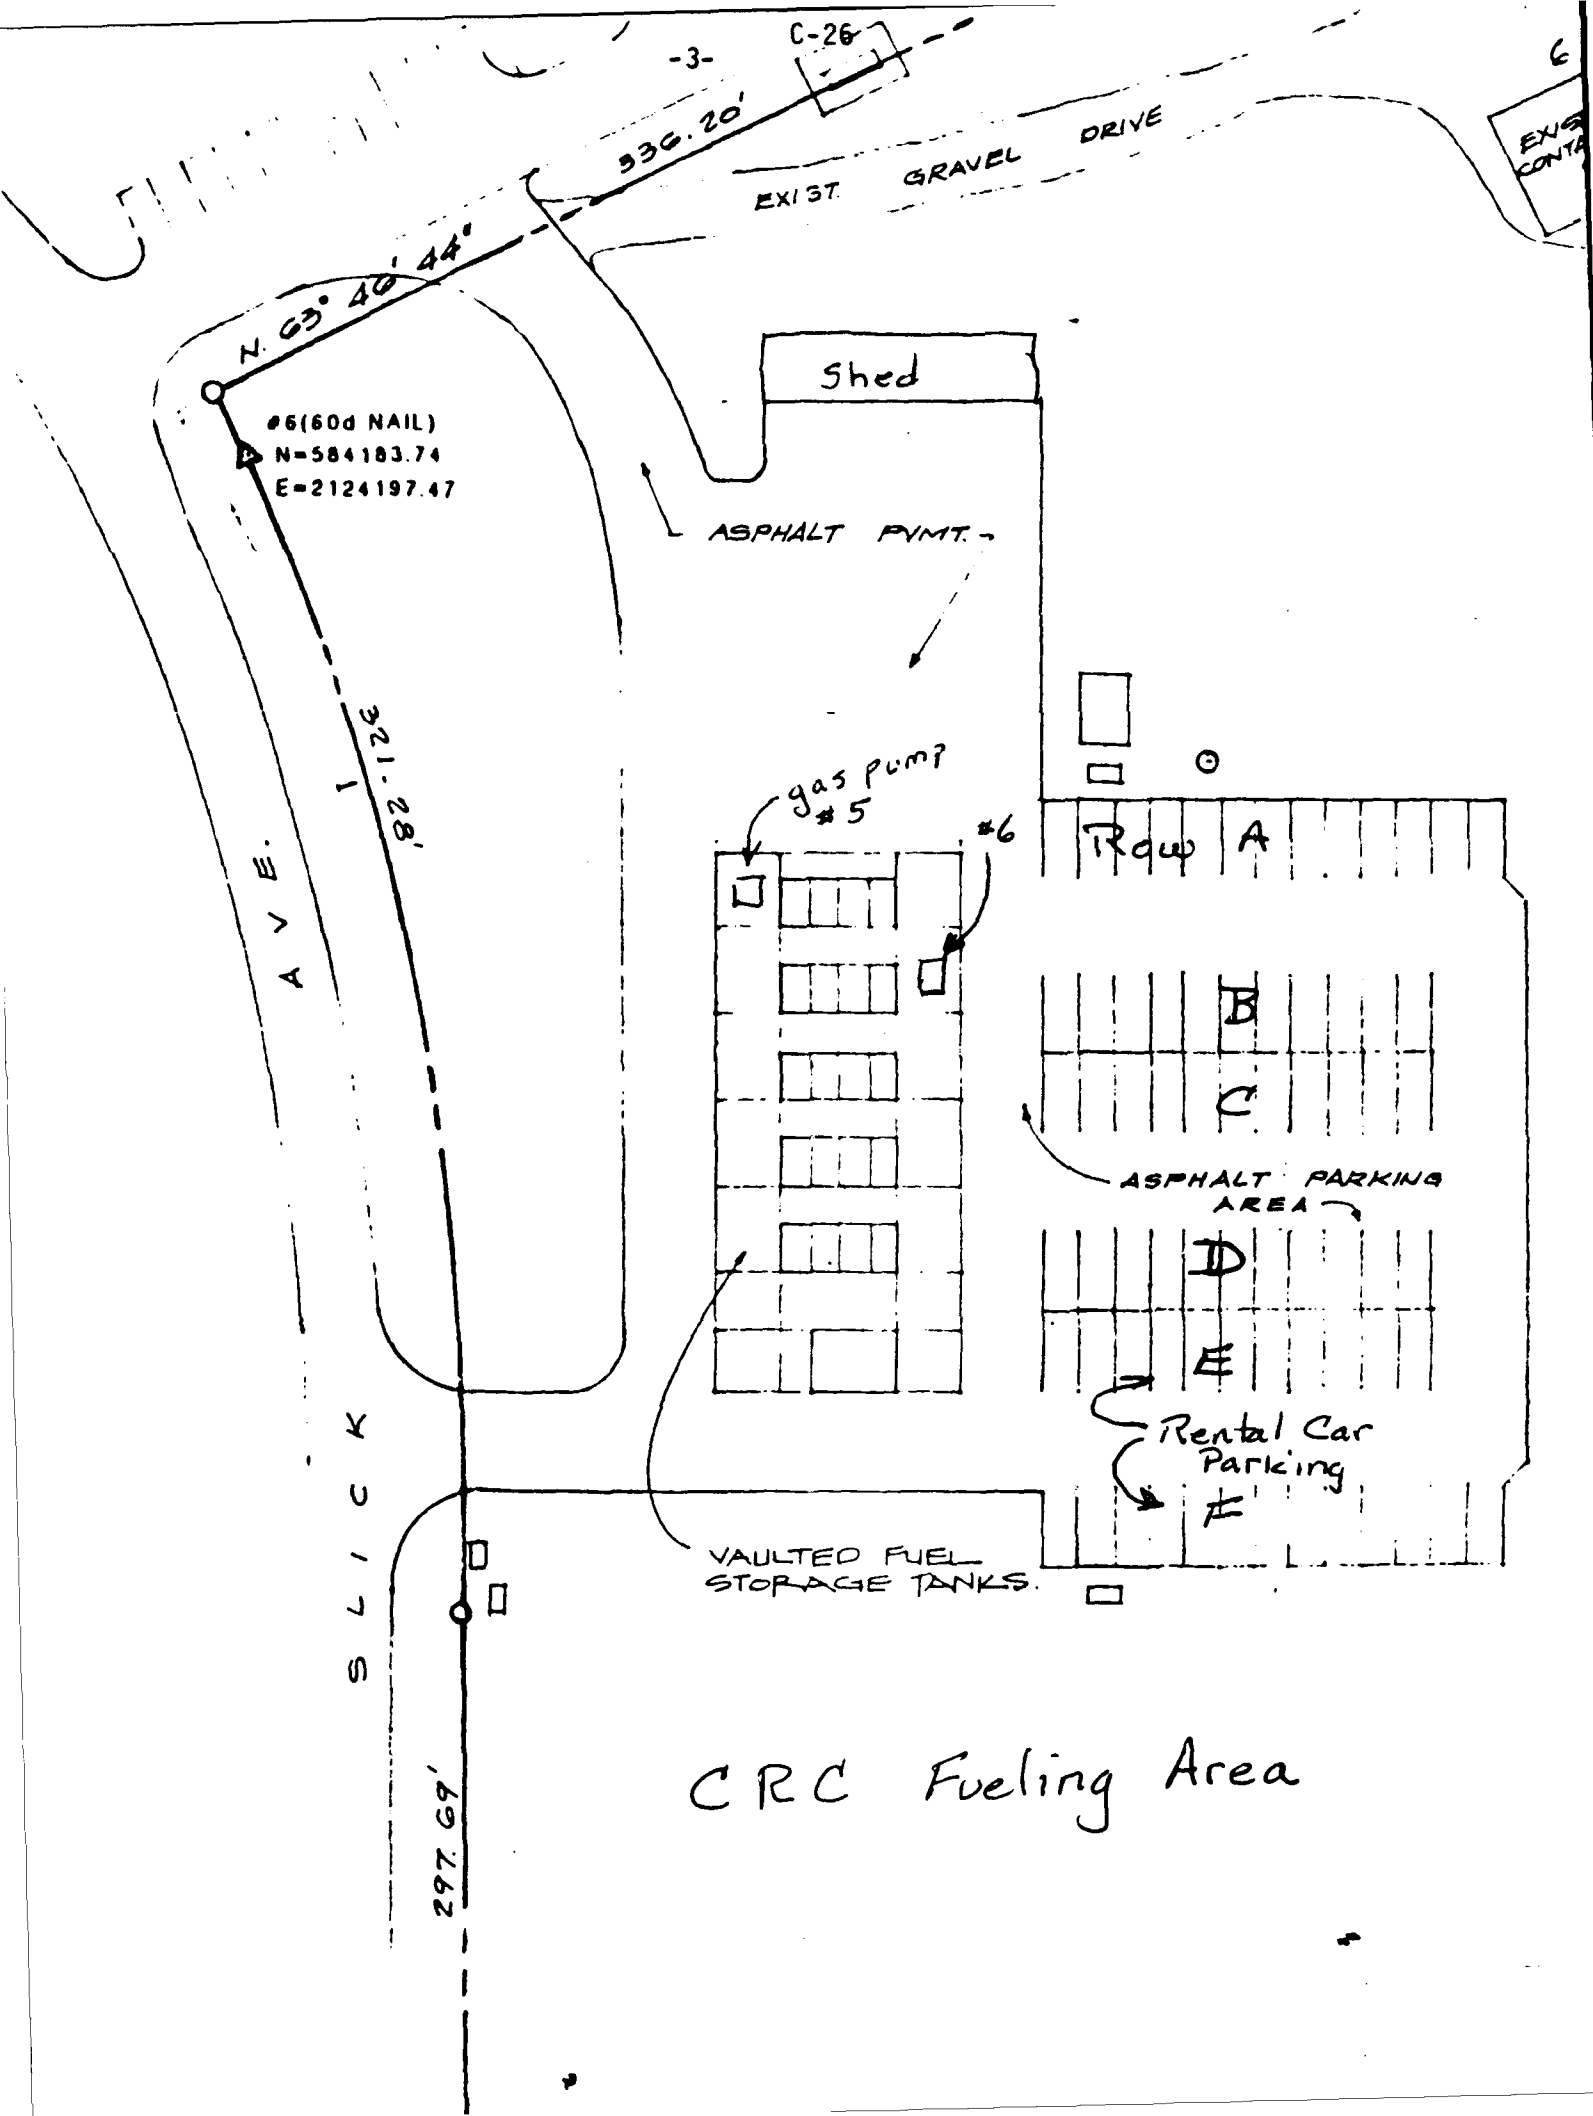 C-26
-3-
6
336.20'
EXIST. GRAVEL DRIVE
EXIS
CONTA
N. 63° 46' 44"
Shed
#6(60d NAIL)
N=584183.74
E=2124197.47
ASPHALT PVMT.
321.28'
gas pump
#5
#6
Row A
SLICK AVE.
B
C
ASPHALT PARKING
AREA
D
E
Rental Car
Parking
F
VAULTED FUEL
STORAGE TANKS.
CRC Fueling Area
297.69'